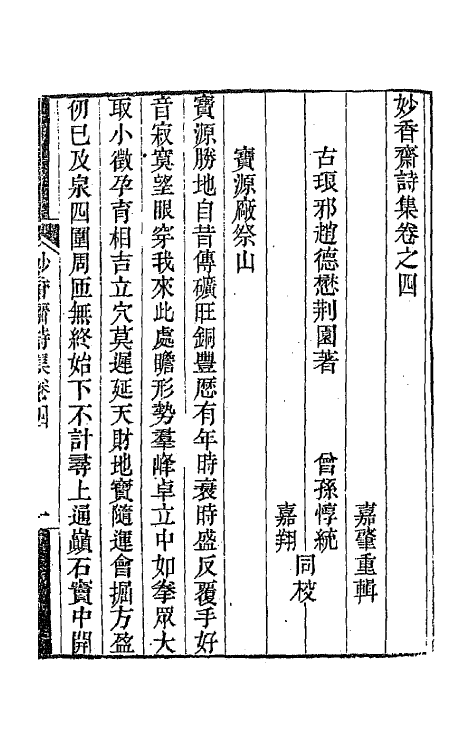 妙香齋詩集卷之四
嘉肇重輯
古琅邪趙德懋荆園著
曾孫惇統同校
嘉翔
寶源廠祭山
寶源勝地自昔傳礦旺銅豐歴有年時衰時盛反覆手好
音寂寞望眼穿我來此處瞻形勢羣峰卓立中如拳眾大
取小徵孕育相吉立穴莫遲延天財地寶隨運會掘方盈
仞已及泉四圍周匝無終始下不計尋上通巔石竇中開
妙香齋詩集卷四
一